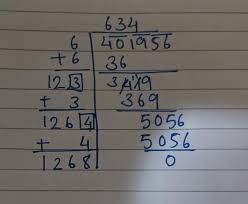 634
6 401956
+6 36
123 3419
+3 369
1264 5056
+ 4 5056
1268 0